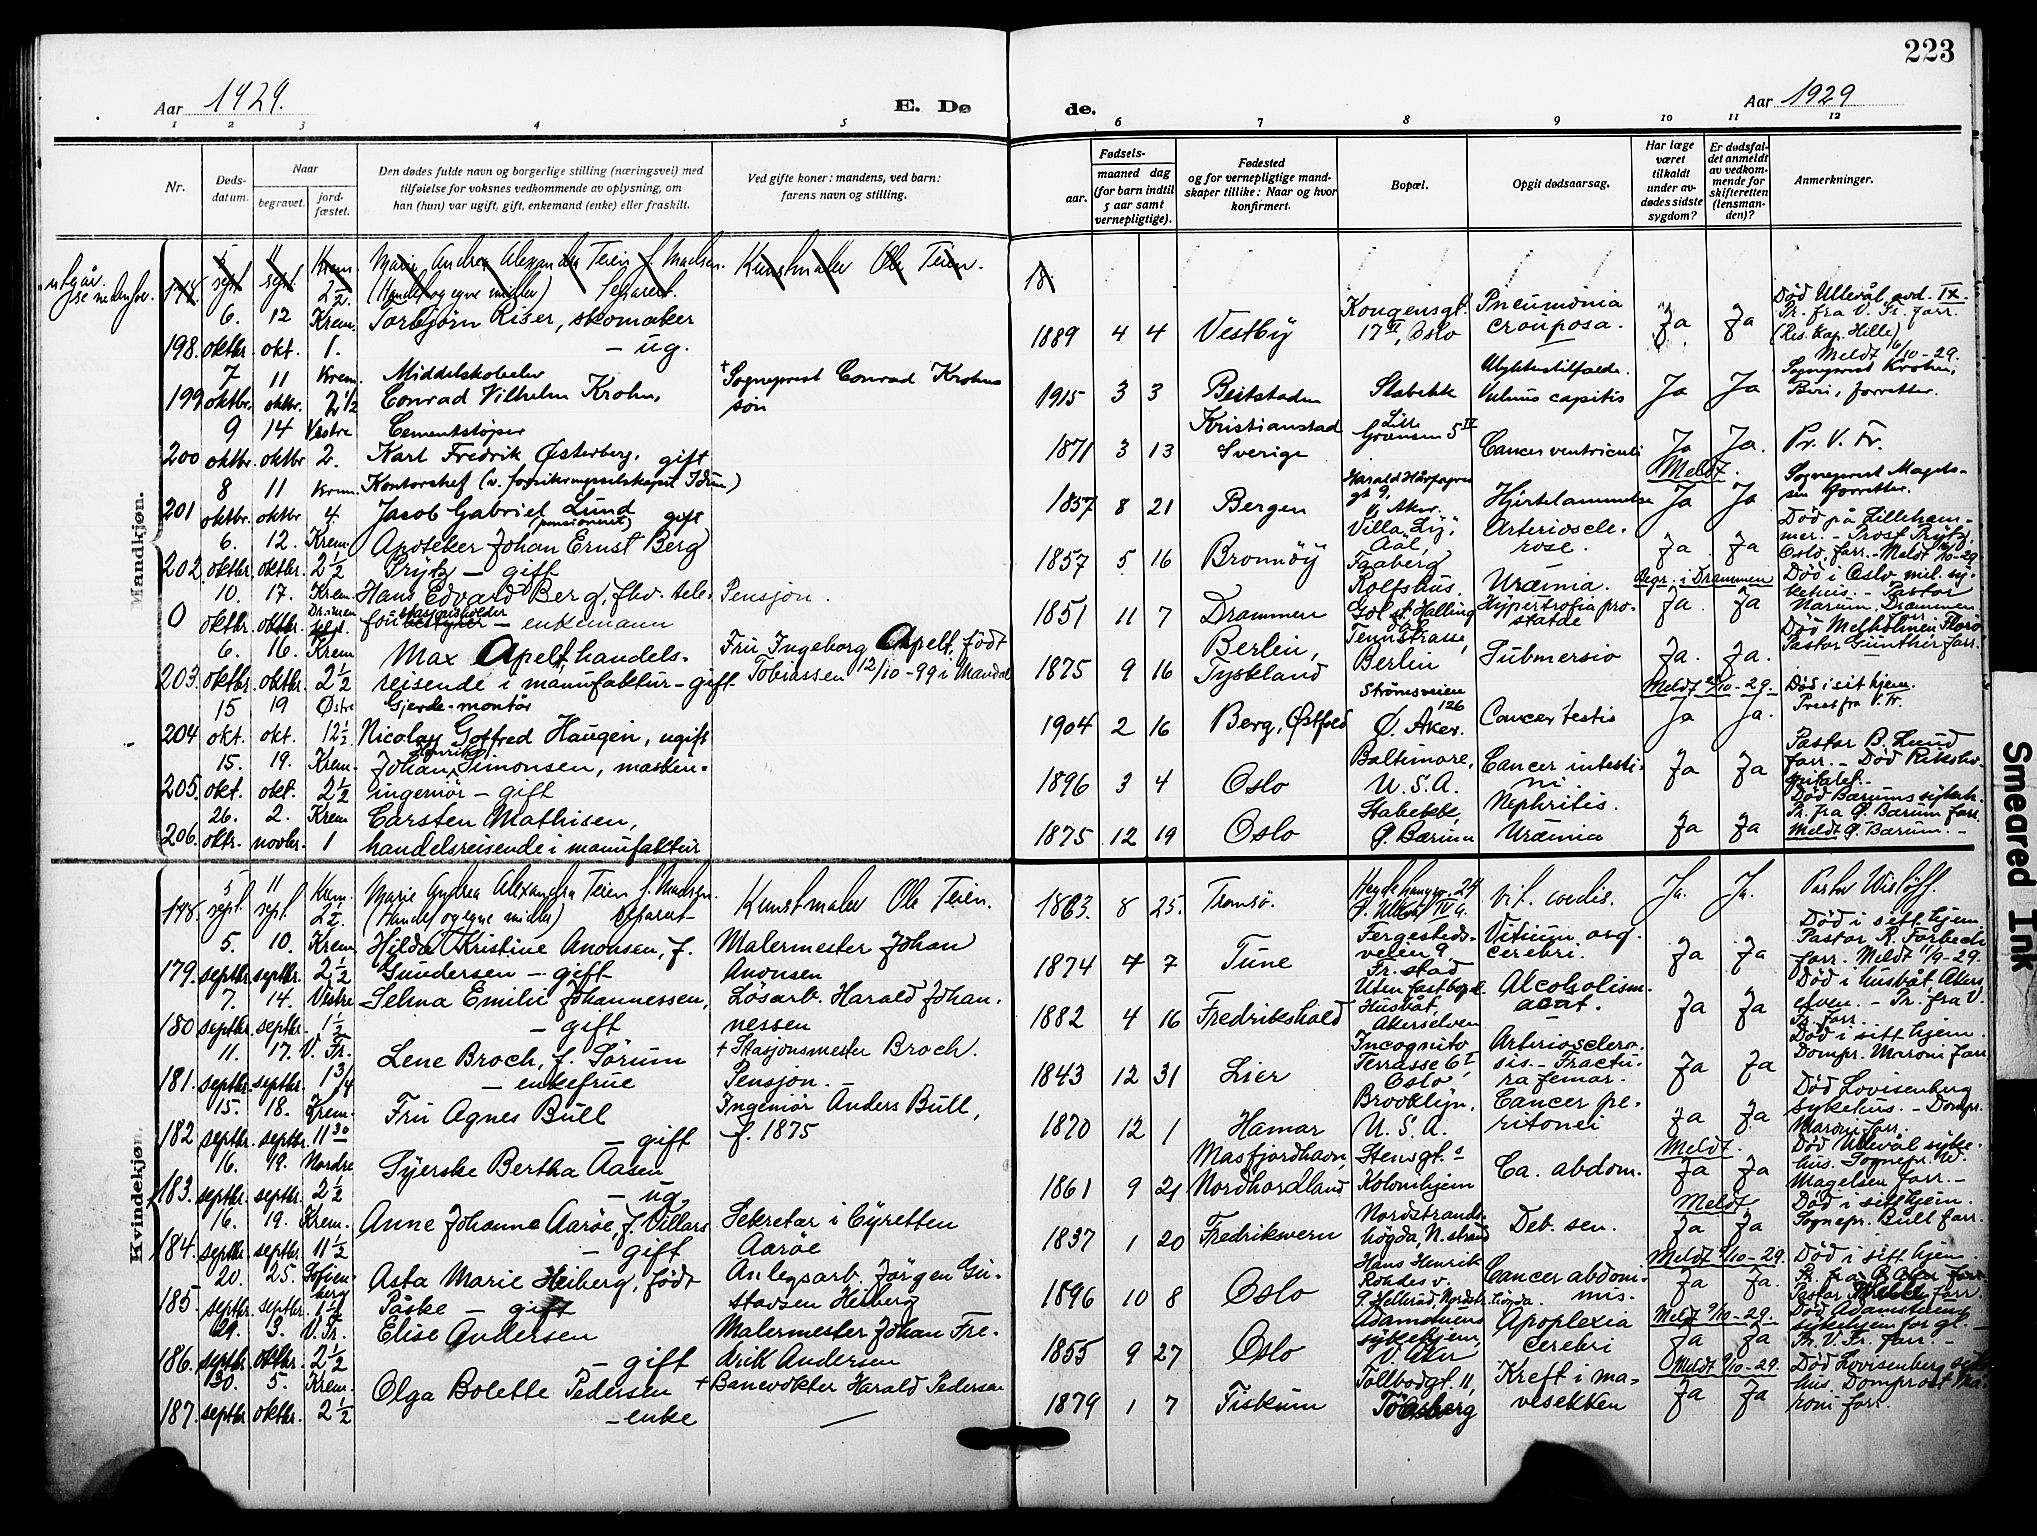 223
Aar 1929.
E. Dø
de.
Aar 1929
1 2 3 4 5 6 7 8 9 10 11 12
Nr.
Døds-
datum.
Naar
begravet.
jord-
fæstet.
Den dødes fulde navn og borgerlige stilling (næringsvei) med
tilføielse for voksnes vedkommende av oplysning, om
han (hun) var ugift, gift, enkemand (enke) eller fraskilt.
Ved gifte koner: mandens, ved barn:
farens navn og stilling.
Fødsels-
aar. maaned dag
(for barn indtil
5 aar samt
vernepligtige).
Fødested
og for vernepligtige mand-
skaper tillike: Naar og hvor
konfirmert.
Bopæl.
Opgit dødsaarsag.
Har læge
været
tilkaldt
under av-
dødes sidste
sygdom?
Er dødsfal-
det anmeldt
av vedkom-
mende for
skifteretten
(lensman-
den)?
Anmerkninger.
Mandkjøn.
utgår.
se nedenfor.
178. 5 sept. 11 sept. Krem. 2½ Marie Andrea Alexandra Teien f. Madsen. Kunstmaler Ole Teien. 18
(Handel og egne midler) Separert.
198. 6. oktbr. 12 okt. Krem. 1. Torbjørn Riser, skomaker
– ug.
1889 4 4 Vestby Kongensgt. 17 II, Oslo Pneumonia crouposa. Ja Ja Død Ullevål avd. IX.
Pr. fra V. Fr. forr.
(Res. Kap. Hille)
Meldt 16/10-29.
199 7 oktbr. 11 oktbr. Krem. 2 1/2 Middelskoleelev
Conrad Vilhelm Krohn,
† Sogneprest Conrad Krohns
søn
1915 3 3 Beitstaden Stabekk Ulykkestilfælde.
Vulnus capitis Ja Ja Sogneprest Krohn,
Biri, forretter.
200 9 oktbr. 14 oktbr Vestre 2. Cementstøper
Karl Fredrik Østerberg, gift
1871 3 13 Kristianstad
Sverige Lille
Grænsen 5 IV Cancer ventriculi Ja Ja. Pr. V. Fr.
Meldt.
201 8 oktbr. 11 oktbr Krem. 4. Kontorchef (v. forsikringsselskapet Idun)
Jacob Gabriel Lund
(pensioneret) gift
1857 8 21 Bergen Harald Hårfagres
gt 9,
V. Aker. Hjertelammelse Ja Ja Sogneprest Magels-
sen forretter.
202. 6. oktbr. 12. oktbr. Krem. 2½ Apoteker Johan Ernst Berg
Prytz – gift
1857 5 16 Brønnøy Villa Ly,
Aal,
Faaberg Arterioscle-
rose. Ja Ja Død på Lilleham-
mer. – Prost Prytz,
Oslo, forr. – Meldt
0 10. oktbr. 17. oktbr. Krem. Hans Edvard Berg, fhv. tele-
fonbestyrer – enkemann
stasjonsholder
Pensjon.
1851 11 7 Drammen Rolfshus,
Gol st. Halling
dal Uræmia.
Hypertrofia pro-
statae Begr. i Drammen
Ja. Ja Død i Oslo mil. sy-
kehus. – Pastor
Narum, Drammen
203. 6. oktbr. 16. oktbr. Krem 2½ Max Apelt, handels-
reisende i manufaktur – gift
Fru Ingeborg Apelt, født
Tobiassen 12/10-99 i Mandal
1875 9 16 Berlin,
Tyskland Berlin Submersio Ja. Ja.
Pastor Günther forr.
Meldt 10-29.
204 15 okt. 19 okt. Østre 12½ Gjerde-montør
Nicolay Gotfred Haugen, ugift
1904 2 16 Berg, Østfold Strømsveien
126
Ø. Aker. Cancer testis Ja Ja. Død i sit hjem.
Prest fra V. Fr.
205. 15. okt. 19. okt. Krem. 2½ Johan Henrik Simonsen, maskin-
ingeniør – gift
1896 3 4 Oslo Baltimore,
U.S.A. Cancer intesti-
ni. Ja Ja Pastor B. Lund
forr. – Død Rikshos-
pitalet. –
206. 26. oktr. 2. novbr. Krem 1 Carsten Mathisen,
handelsreisende i manufaktur
1875 12 19 Oslo Stabekk,
Ø. Bærum Nephritis.
Uræmia Ja Ja Død Bærums sykeh.
Pr. fra Ø. Bærum forr.
Meldt Ø. Bærum. –
Kvindekjøn.
178. 5 sept. 11 sept. Krem. 2½. Marie Andrea Alexandra Teien f. Madsen.
(Handel og egne midler) Separert –
Kunstmaler Ole Teien.
1863. 8 25. Tromsø. vit. cordis. Ja. Ja. Pastor Wisløff.
179. 5. septbr. 10. septbr. Krem. 2½ Hilda Kristine Anonsen, f.
Gundersen – gift
Malermester Johan
Anonsen
1874 4 7 Tune Fergesteds-
veien 9,
Fr. stad Vitium org.
cerebri. Ja Ja Død i sitt hjem
Pastor R. Forbech
forr. Meldt 11/9-29.
180 7. septbr. 14. septbr. Vestre 1½ Selma Emilie Johannessen,
– gift
Løsarb. Harald Johan.
nessen
1882 4 16 Fredrikshald Uten fast bopæl.
Husbåt,
Akerselven Alcoholism.
acut. Ja Ja Død i husbåt, Akers
elven. – Pr. fra V.
Fr. forr.
181. 11. septbr. 17. septbr. V. Fr. 1 3/4 Lene Broch, f. Sørum
– enkefrue
† Stasjonsmester Broch.
Pensjon. –
1843 12 31 Lier Incognito
Terrasse 6 I
Oslo Arterioscléro-
sis. – Fractu-
ra femor. Ja Ja Død i sitt hjem.
Dompr. Maroni forr
182 15. septbr. 18. septbr. Krem. 11 30 Fru Agnes Bull
– gift
Ingeniør Anders Bull,
f. 1875
1870 12 1 Hamar Brooklyn,
U.S.A. Cancer pe-
ritonei Ja Ja Død Lovisenberg
sykehus. – Dompr.
Maroni forr.
183. 16. septbr. 19. septbr. Nordre 2½ Syerske Bertha Aasen
– ug.
1861 9 21 Masfjordhavn,
Nordhordland Stensgt.
Kolonihjem Ca. abdom. Meldt.
Ja Ja Død Ullevål syke-
hus. Sognepr. W.
Magelsen forr. –
184. 16. septbr. 19. septbr. Krem. 11½ Anne Johanne Aarøe, f. Villars
– gift
Sekretær i Byretten
Aarøe
1837 1 20 Fredriksvern Nordstrands-
høgda, N. strand Deb. sen. Meldt.
Ja Ja Død i sitt hjem.
Sognepr. Bull forr.
185. 20. septbr. 25. septbr. Sofien-
berg 1½ Asta Marie Heiberg, født
Påske – gift
Anlegsarb. Jørgen Gu-
stavsen Heiberg
1896 10 8 Oslo Hans Henrik
Rohdes v.
høgda. Cancer abdom-
inis. Meldt 9/10-29.
Ja Ja. Død i sitt hjem.
186. 29. septbr. 3. oktbr. V. Fr. 2½ Elise Andersen
– gift
Malermester Johan Fre-
drik Andersen
1855 9 27 Oslo Adamstuens
sykehjem,
V. Aker Apoplexia
cerebri Meldt 9/10-29.
Ja Ja Død Adamstuens
sykehjem for gl. –
Pr. V. Fr. forr. –
187. 30. septbr 5. oktbr. Krem. 2½ Olga Bolette Pedersen
– enke
† Banevokter Harald Pedersen
1879 1 7 Fiskum Tollbodgt. 11,
Tønsberg Kreft i ma-
vesekken Meldt 9/10-29.
Ja Ja Død Lovisenberg syke-
hus. Domprost Ma-
roni forr.
Smeared Ink